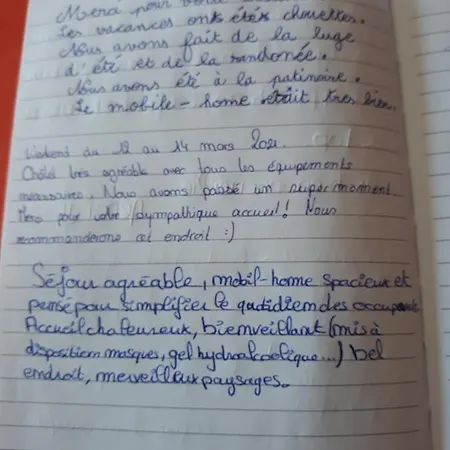 Merci pour votre
Les vacances ont étés chouettes.
Nous avons fait de la luge
d'été et de la randonée.
Nous avons été à la patinoire.
Le mobile-home était très bien.
Weekend du 12 au 14 mars 2021.
Châlet très agréable avec tous les équipements
nécessaires. Nous avons passé un super moment.
Merci pour votre sympathique accueil! Nous
recommanderons cet endroit :)
Séjour agréable, mobil-home spacieux et
pensé pour simplifier le quotidien des occupants
Accueil chaleureux, bienveillant (mis à
disposition masques, gel hydroalcoolique...) bel
endroit, merveilleux paysages.